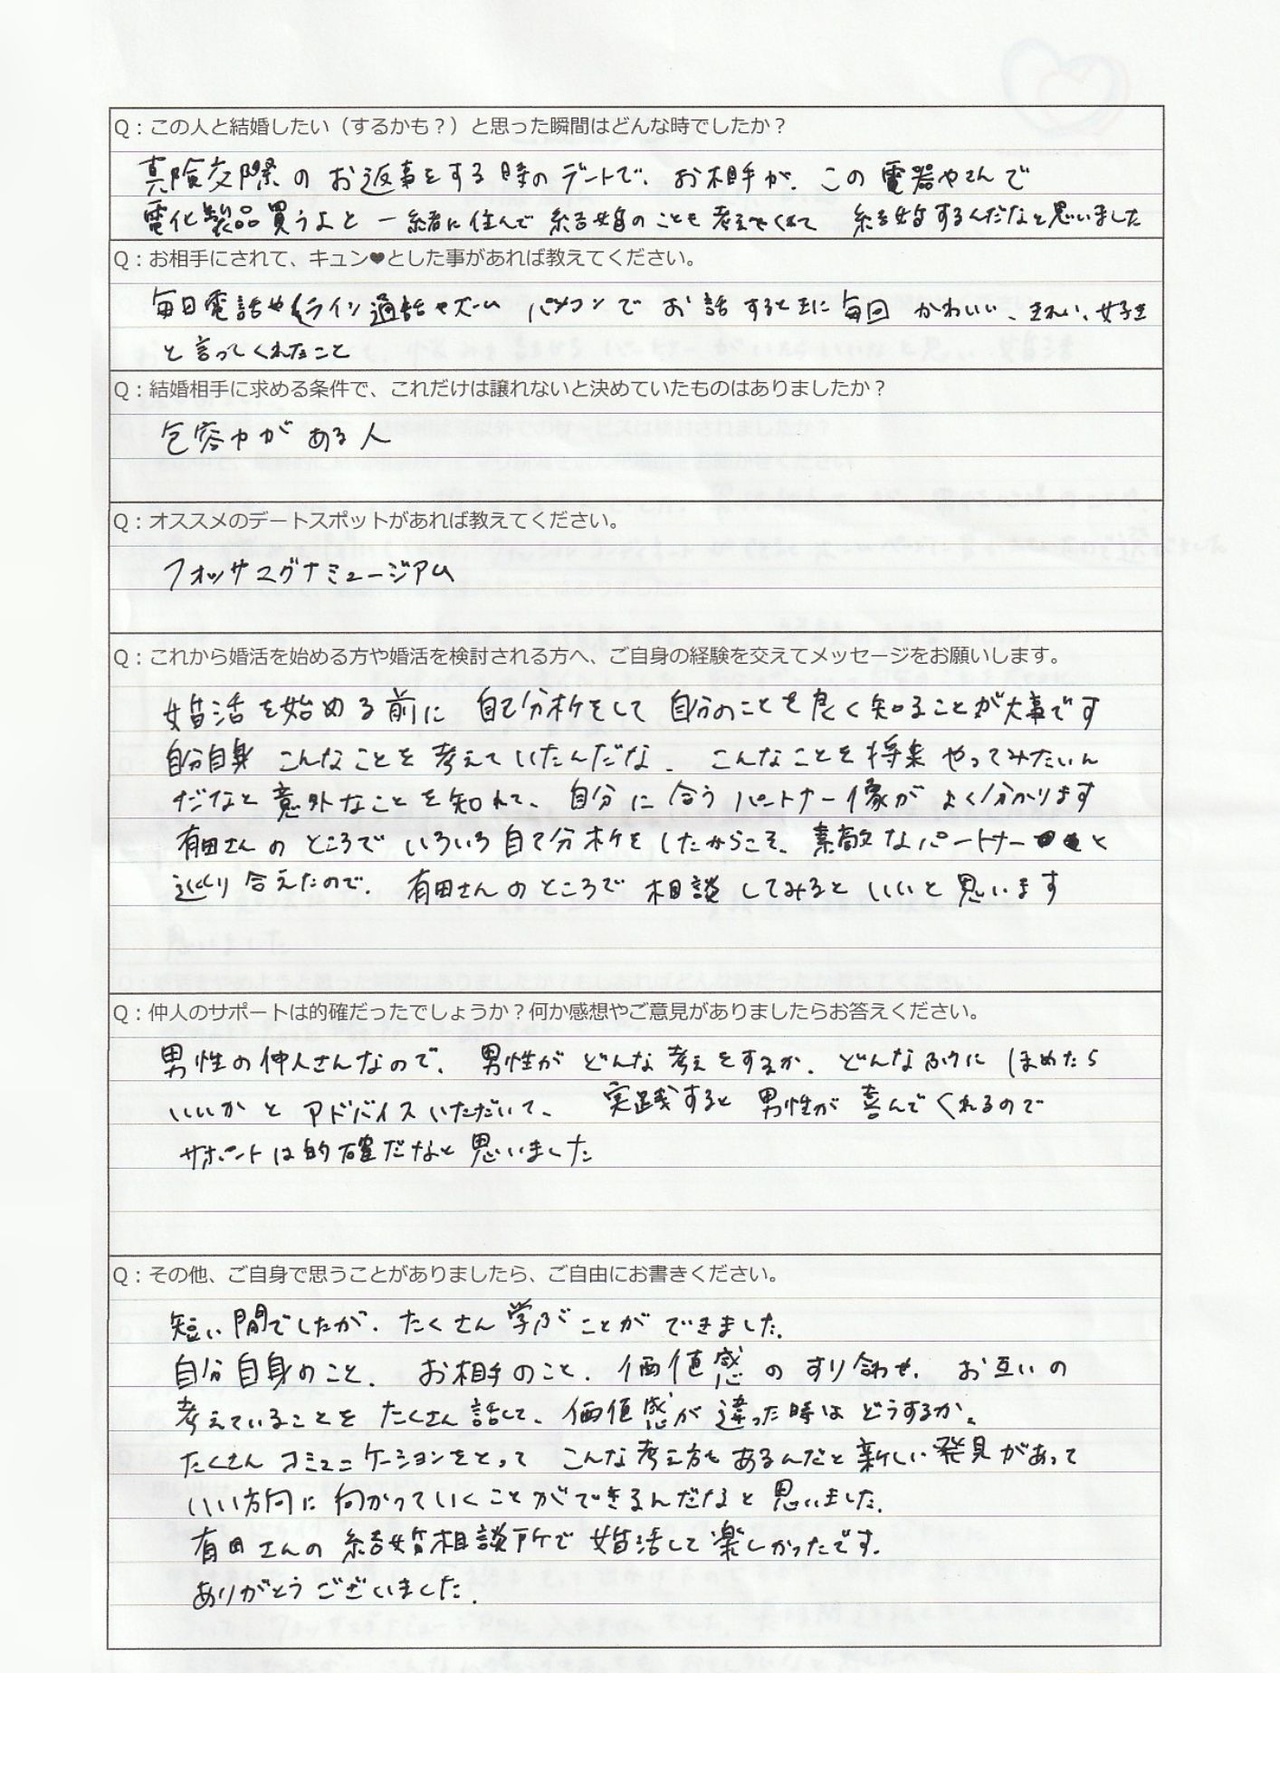 Q：この人と結婚したい（するかも？）と思った瞬間はどんな時でしたか？
真険交際のお返事をする時のデートで、お相手が、この電器やさんで
電化製品買うよと一緒に住んで結婚のことも考えてくれて 結婚するんだなと思いました
Q：お相手にされて、キュン♥とした事があれば教えてください。
毎日電話やライン通話やズーム パソコンでお話するときに毎回 かわいい、きれい、好き
と言ってくれたこと
Q：結婚相手に求める条件で、これだけは譲れないと決めていたものはありましたか？
包容力がある人
Q：オススメのデートスポットがあれば教えてください。
フォッサマグナミュージアム
Q：これから婚活を始める方や婚活を検討される方へ、ご自身の経験を交えてメッセージをお願いします。
婚活を始める前に 自己分析をして 自分のことを良く知ることが大事です
自分自身 こんなことを考えていたんだな、こんなことを将来やってみたいん
だなと意外なことを知れて、自分に合うパートナー像がよく分かります
有田さんのところでいろいろ自己分析をしたからこそ、素敵なパートナーと
巡り合えたので、有田さんのところで相談してみるといいと思います
Q：仲人のサポートは的確だったでしょうか？何か感想やご意見がありましたらお答えください。
男性の仲人さんなので、男性がどんな考えをするか、どんなふうにほめたら
いいかとアドバイスいただいて、実践すると男性が喜んでくれるので
サポートは的確だなと思いました
Q：その他、ご自身で思うことがありましたら、ご自由にお書きください。
短い間でしたが、たくさん学ぶことができました。
自分自身のこと、お相手のこと、価値感のすり合わせ、お互いの
考えていることをたくさん話して、価値感が違った時はどうするか、
たくさんコミュニケーションをとって こんな考え方もあるんだと新しい発見があって
いい方向に向かっていくことができるんだなと思いました。
有田さんの結婚相談所で婚活して楽しかったです。
ありがとうございました。